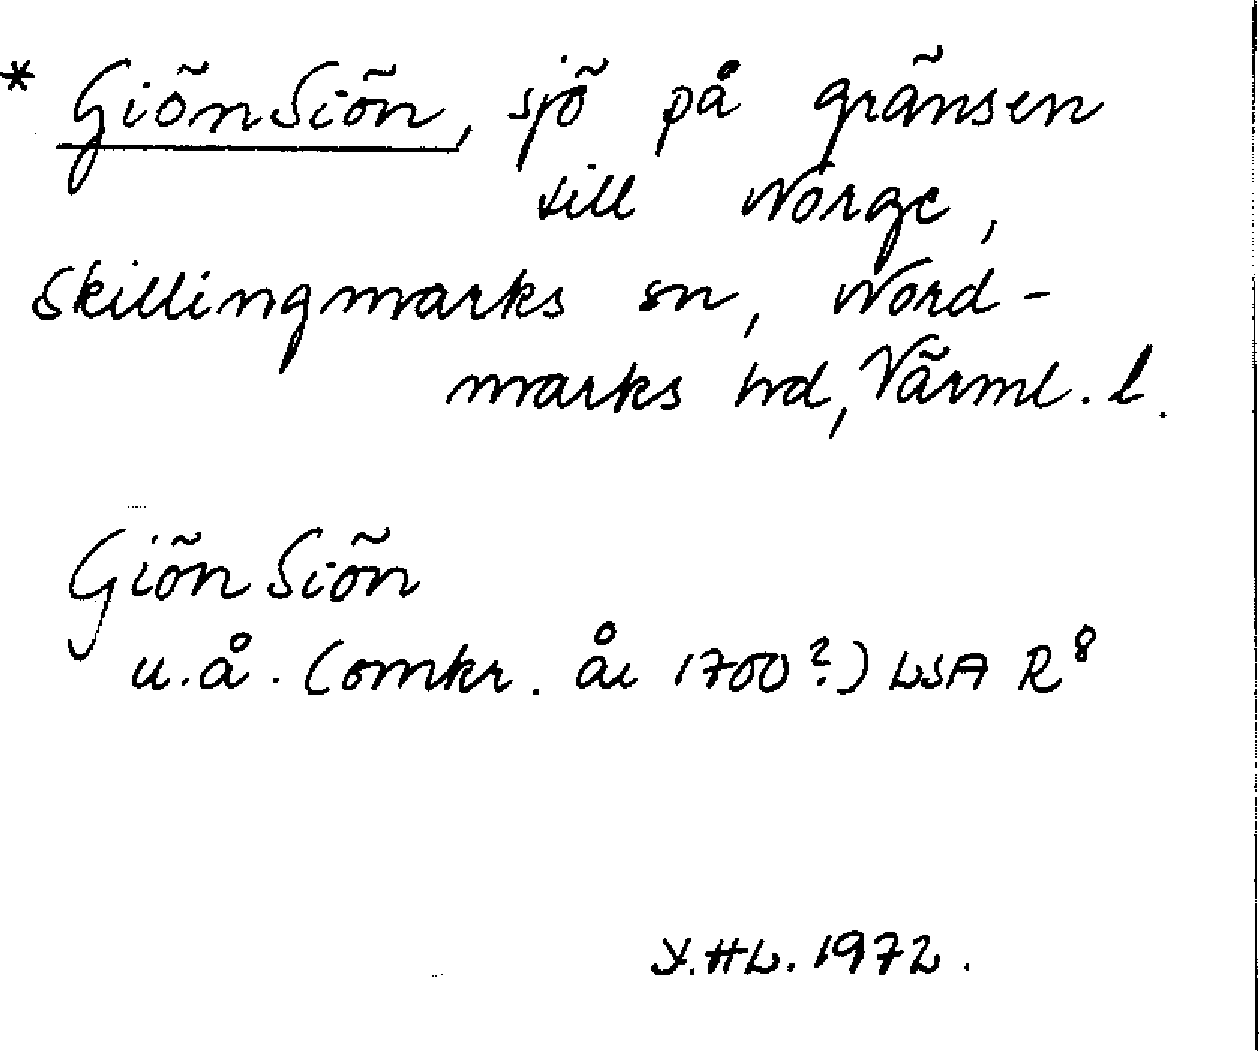 * GiönSiön, sjö på gränsen
till Norge,
Skillingmarks sn, Nord-
marks hd, Värml. l.
Giön Siön
u.å. (omkr. år 1700?) LSA R8
Y.HL. 1972.